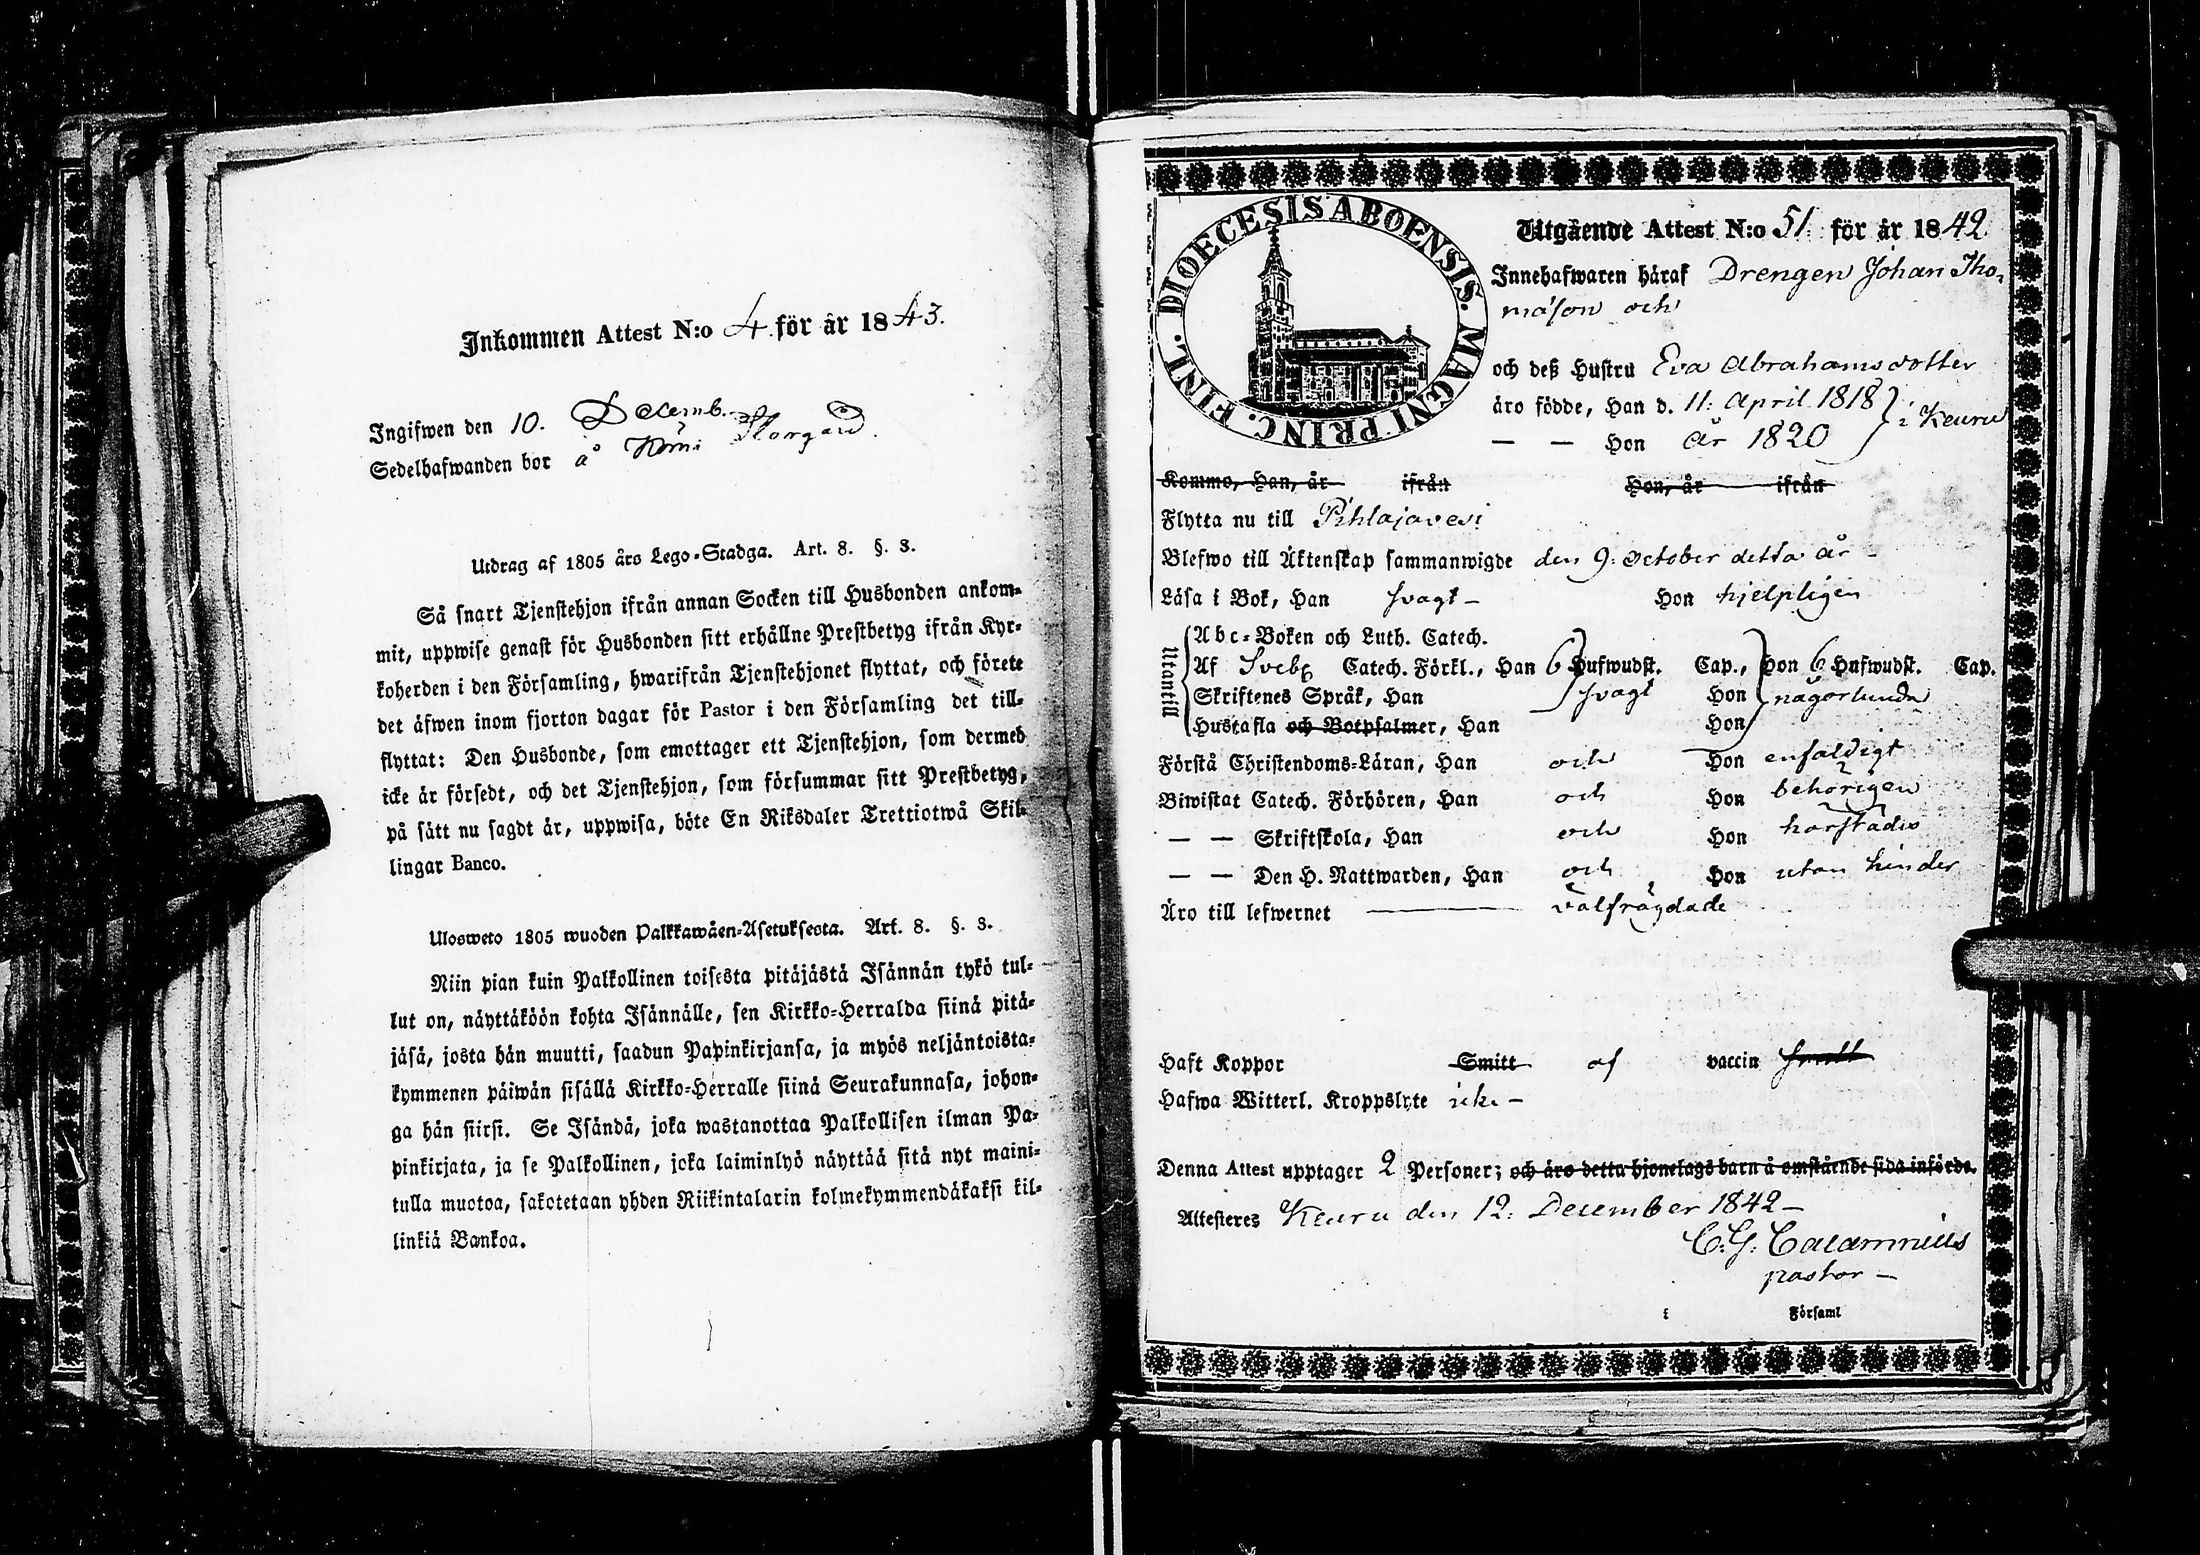 Inkommen Attest N:o 4 för år 1843.
Ingifwen den 10. Decemb.
Sedelhafwanden bor å Storgård.
Utdrag af 1805 års Lego-Stadga. Art. 8. §. 3.
Så snart Tjenstehjon ifrån annan Socken till Husbonden ankom-
mit, uppwise genast för Husbonden sitt erhållne Prestbetyg ifrån Kyr-
koherden i den Församling, hwarifrån Tjenstehjonet flyttat, och förete
det äfwen inom fjorton dagar för Pastor i den Församling det till-
flyttat: Den Husbonde, som emottager ett Tjenstehjon, som dermed
icke är försedt, och det Tjenstehjon, som försummar sitt Prestbetyg,
på sätt nu sagdt är, uppwisa, böte En Riksdaler Trettiotwå Skil-
lingar Banco.
Ulosweto 1805 wuoden Palkkawäen-Asetuksesta. Art. 8. §. 3.
Niin pian kuin Palkollinen toisesta pitäjästä Isännän tykö tul-
lut on, näyttäköön kohta Isännälle, sen Kirkko-Herralda siinä pitä-
jäsä, josta hän muutti, saadun Papinkirjansa, ja myös neljäntoista-
kymmenen päiwän sisällä Kirkko-Herralle siinä Seurakunnasa, johon-
ga hän siirsi. Se Isändä, joka wastanottaa Palkollisen ilman Pa-
pinkirjata, ja se Palkollinen, joka laiminlyö näyttää sitä nyt maini-
tulla muotoa, sakotetaan yhden Riikintalarin kolmekymmendäkaksi kil-
linkiä Bankoa.
DIOECESIS ABOENSIS. MAGNI PRINC. FINL.
Utgående Attest N:o 51. för år 1842
Innehafwaren häraf Drengen Johan Tho-
mäson och
och deß Hustru Eva Abrahamsdotter
äro födde, Han d. 11. April 1818 } i Keuru
— — Hon år 1820
Kommo, Han, år ifrån Hon, år ifrån
Flytta nu till Pihlajavesi
Blefwo till Äktenskap sammanwigde den 9. October detta år –
Läsa i Bok, Han svagt – Hon hjelpligen
Utantill
Abc-Boken och Luth. Catech.
Af Sveb. Catech. Förkl., Han 6 Hufwudst. Cap., Hon 6 Hufwudst. Cap.
Skriftenes Språk, Han svagt Hon någorlunda
Hustafla och Botpsalmer, Han Hon
Förstå Christendoms-Läran, Han och Hon enfaldigt
Biwistat Catech. Förhören, Han och Hon behörigen
— — Skriftskola, Han och Hon härstädes
— — Den H. Nattwarden, Han och Hon utan hinder
Äro till lefwernet välfrägdade
Haft Koppor Smitt af vaccin smitt
Hafwa Witterl. Kroppslyte icke –
Denna Attest upptager 2 Personer; och äro detta hjonelags barn å omstående sida införde.
Attesteres Keuru den 12. December 1842 –
C. G. Calamnius
pastor –
Församl